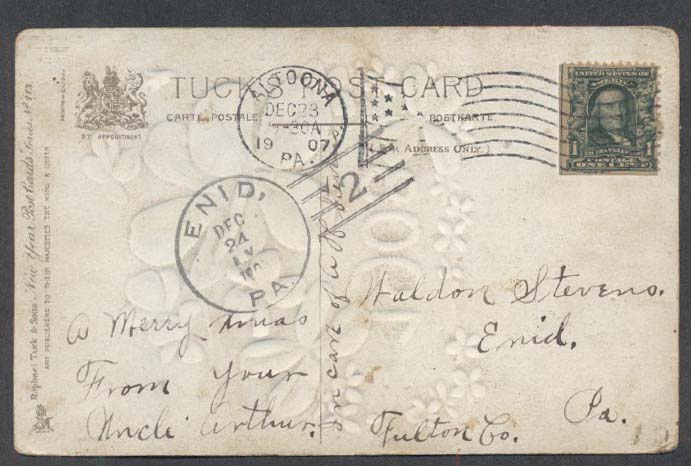 TUCK'S POST CARD
CARTE POSTALE.
POSTKARTE.
(FOR ADDRESS ONLY.)
BY APPOINTMENT
Raphael Tuck & Sons' "New Year" Post Cards
ART PUBLISHERS TO THEIR MAJESTIES THE KING & QUEEN
ALTOONA
DEC 23
1907
PA.
2
UNITED STATES OF
1 1
FRANKLIN
POSTAGE
ONE CENT
ENID,
DEC
24
PA.
A Merry Xmas
From your
Uncle Arthur.
In care of
Waldon Stevens.
Enid.
Fulton Co. Pa.